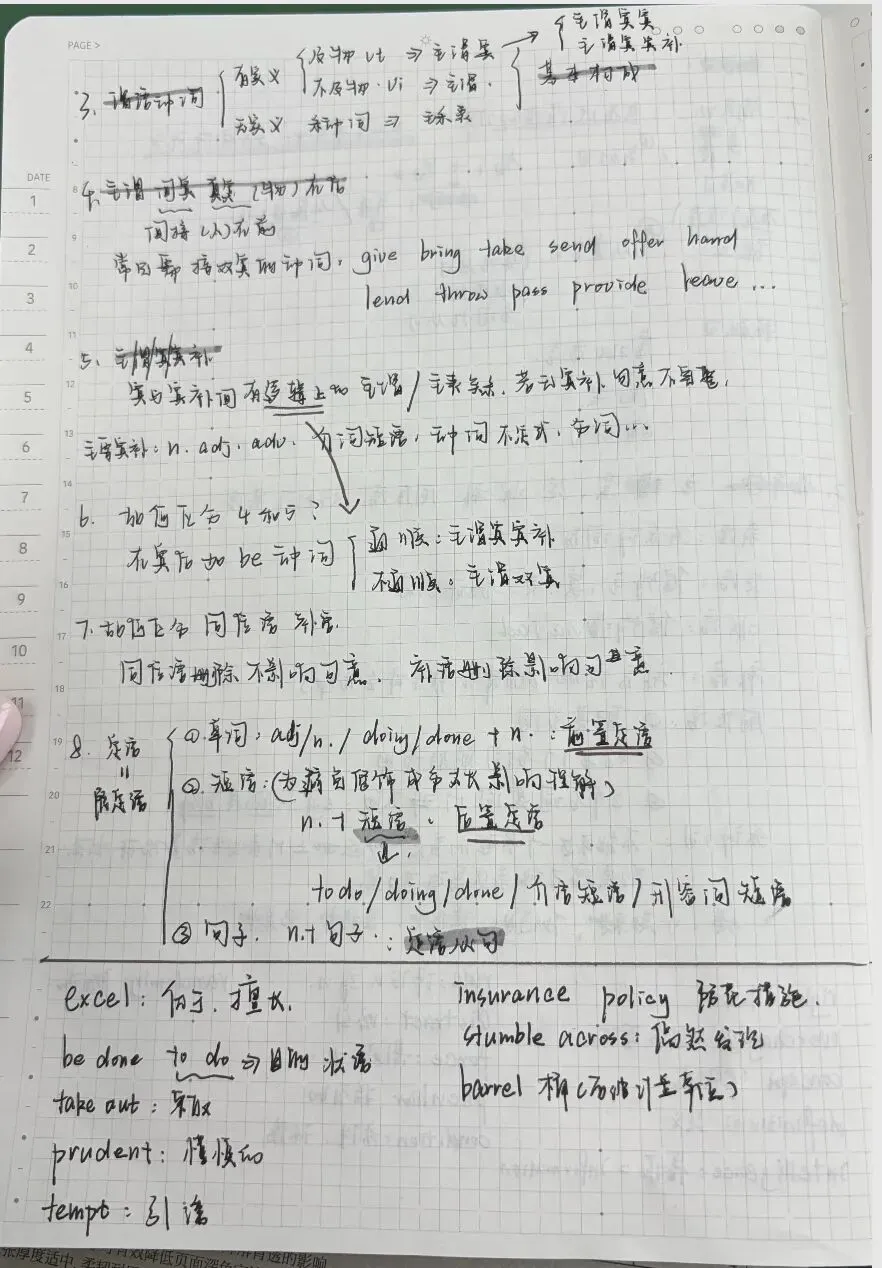 PAGE >
DATE
3、谓语动词
有实义 及物 vt ⇒ 主谓宾 → 主谓宾宾
主谓宾宾补
不及物 vi ⇒ 主谓.
基本构成
无实义 系动词 ⇒ 主系表
4、主谓 间宾 直宾 (物)在后
间接(人)在前
常用 接双宾的动词, give bring take send offer hand
lend throw pass provide leave ...
5、主/谓/宾/宾补
宾与宾补间有逻辑上的 主谓/主表关系. 若去宾补句意不完整.
主要宾补: n. adj. adv. 介词短语, 动词不定式, 分词...
6. 如何区分 4 和 5 ?
在宾后加 be 动词 通顺: 主谓宾宾补
不通顺: 主谓双宾
7. 如何区分 同位语 补语.
同位语删除不影响句意. 补语删除影响句意.
8. 定语 = 形定语
①.单词: adj/n./doing/done + n. : 前置定语
②.短语:(为避免修饰成分太长影响理解)
n. + 短语. 后置定语
to do/doing/done/介语短语/形容词短语
③ 句子. n.+句子.: 定语从句
excel: 优于, 擅长.
insurance policy 防范措施.
be done to do ⇒ 目的状语
stumble across: 偶然发现
take out: 采取
barrel 桶(石油计量单位)
prudent: 谨慎的
tempt: 引诱